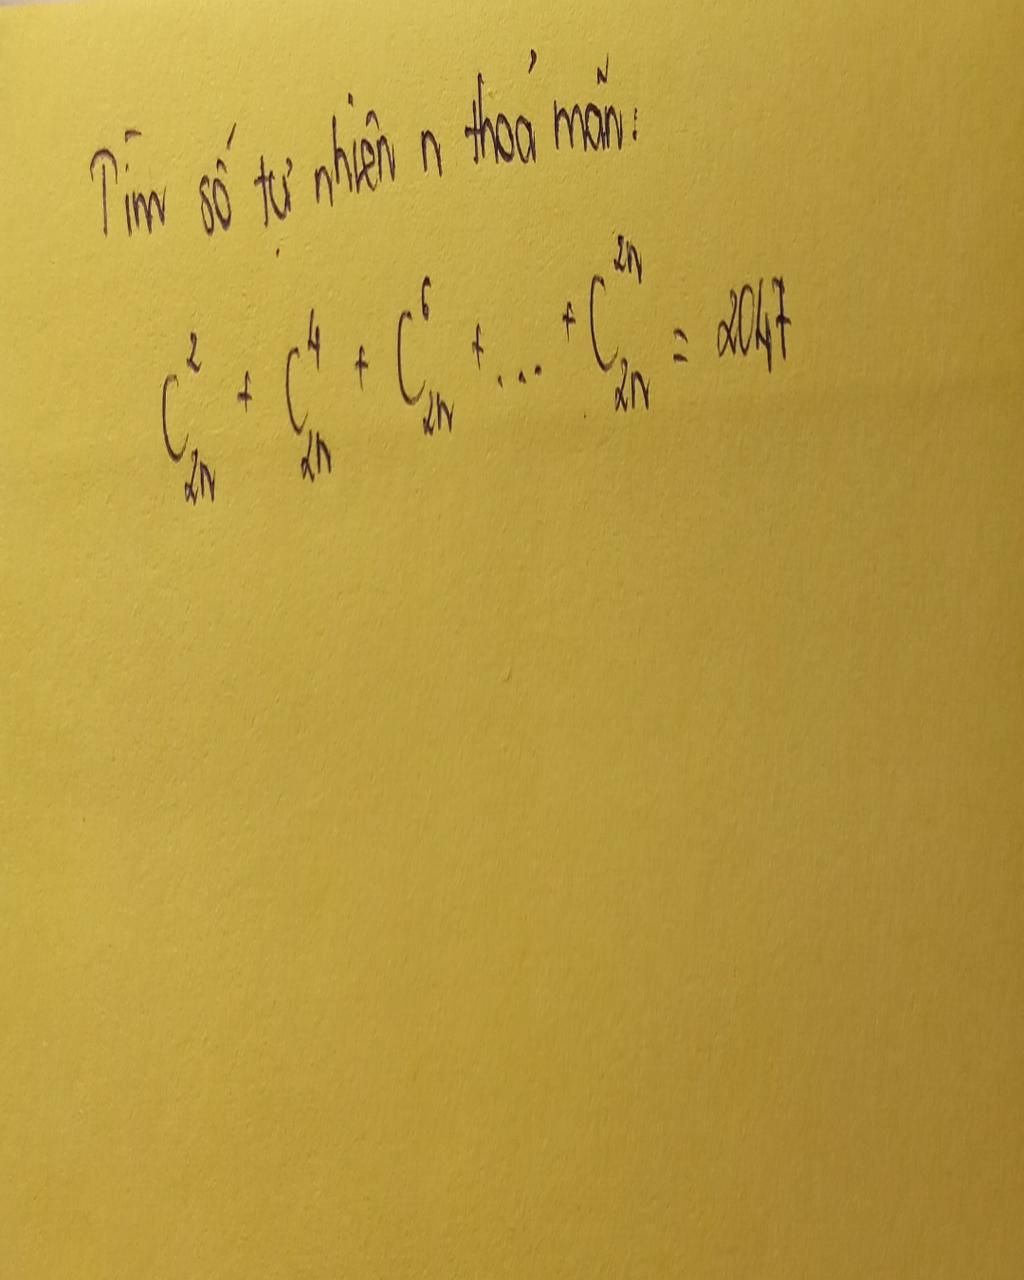 Tìm số tự nhiên n thoả mãn:
C_{2n}^{2} + C_{2n}^{4} + C_{2n}^{6} + ... + C_{2n}^{2n} = 2047